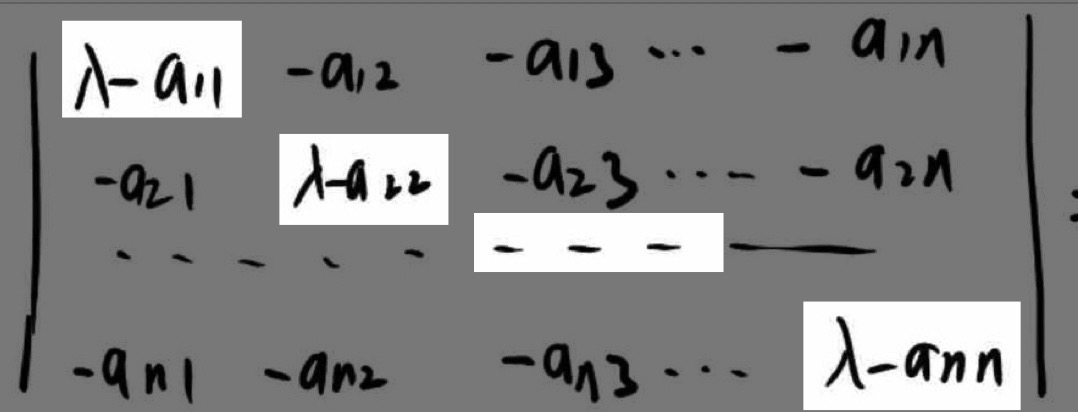 | λ-a11 -a12 -a13 ... - a1n |
-a21 λ-a22 -a23 ... - a2n :
. - - . - - - - —
-an1 -an2 -an3 ... λ-ann